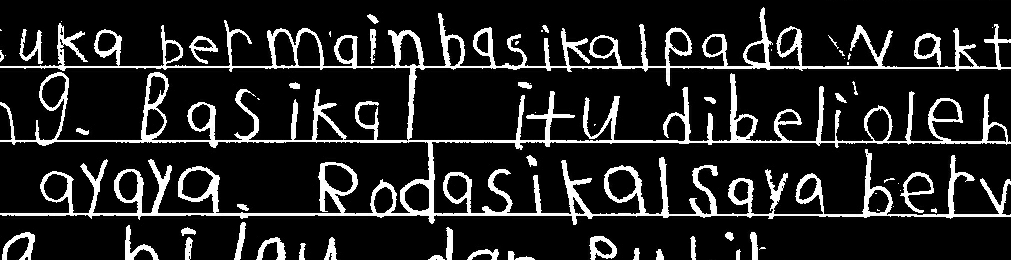 suka bermain basikal pada wakt
ng. Basikal itu dibeli oleh
ayaya. Rodasikal saya berw